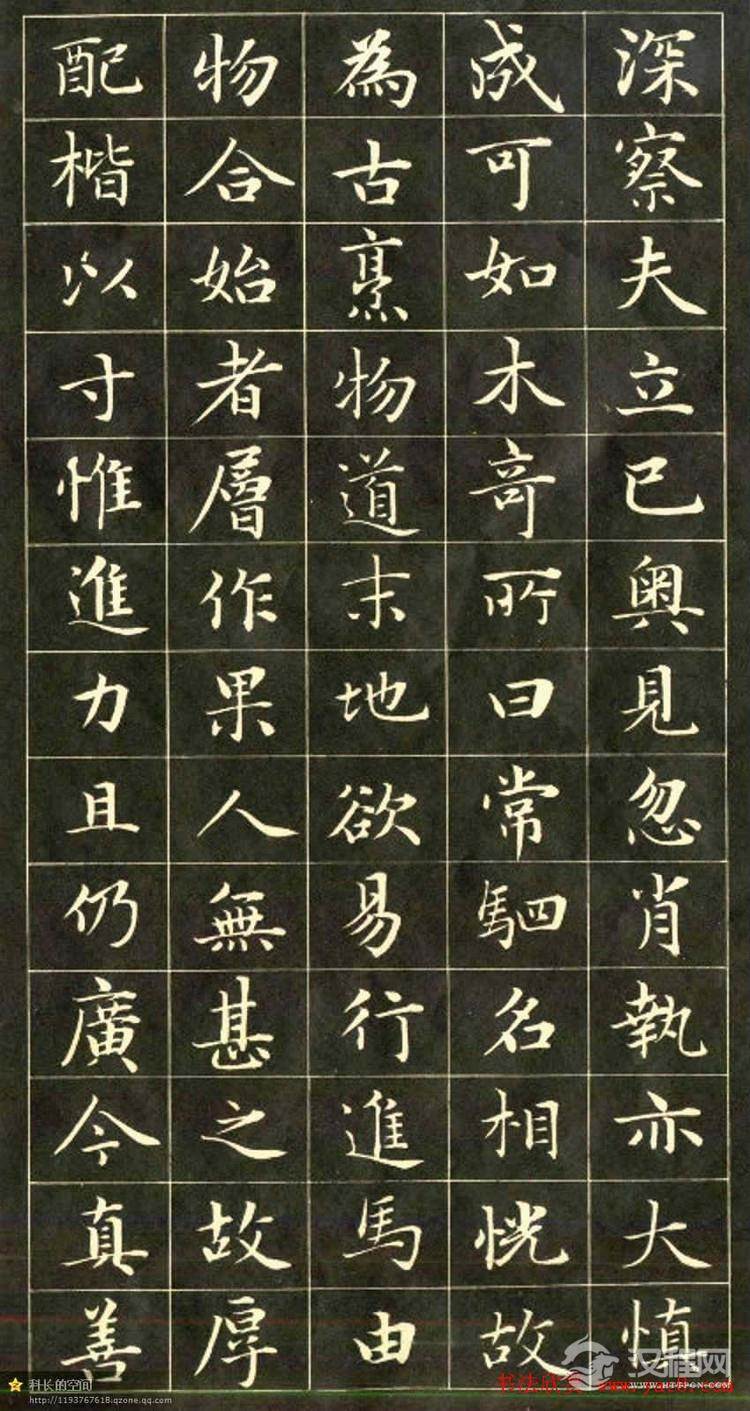 深察夫立已奥見忽肖執亦大慎
成可如木奇所曰常駟名相恍故
為古烹物道末地欲易行進馬由
物合始者層作果人無甚之故厚
配楷以寸惟進力且仍廣今真善
汉程网
WWW.HTTPCN.COM
书法欣
科长的空间
http://1193767618.qzone.qq.com